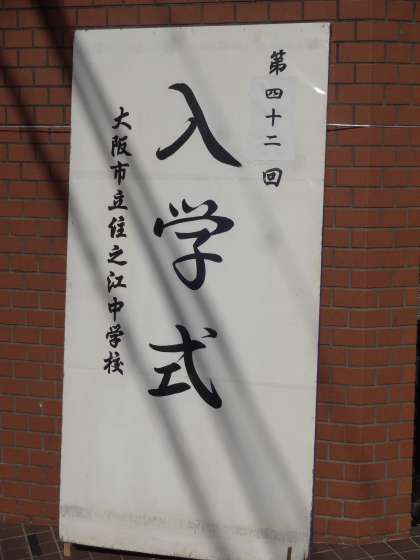 第四十二回
入学式
大阪市立住之江中学校